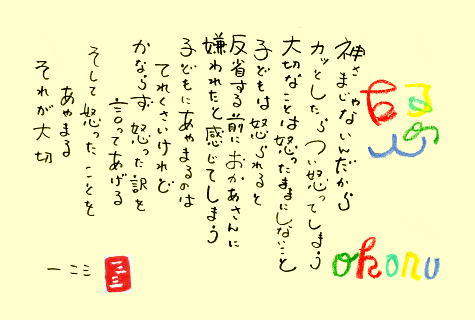 おこる
okoru
神さまじゃないんだから
カッとしたら つい怒ってしまう
大切なことは怒ったままにしないこと
子どもは怒られると
反省する前におかあさんに
嫌われたと感じてしまう
子どもにあやまるのは
てれくさいけれど
かならず 怒った訳を
言ってあげる
そして 怒ったことを
あやまる
それが大切
一二三